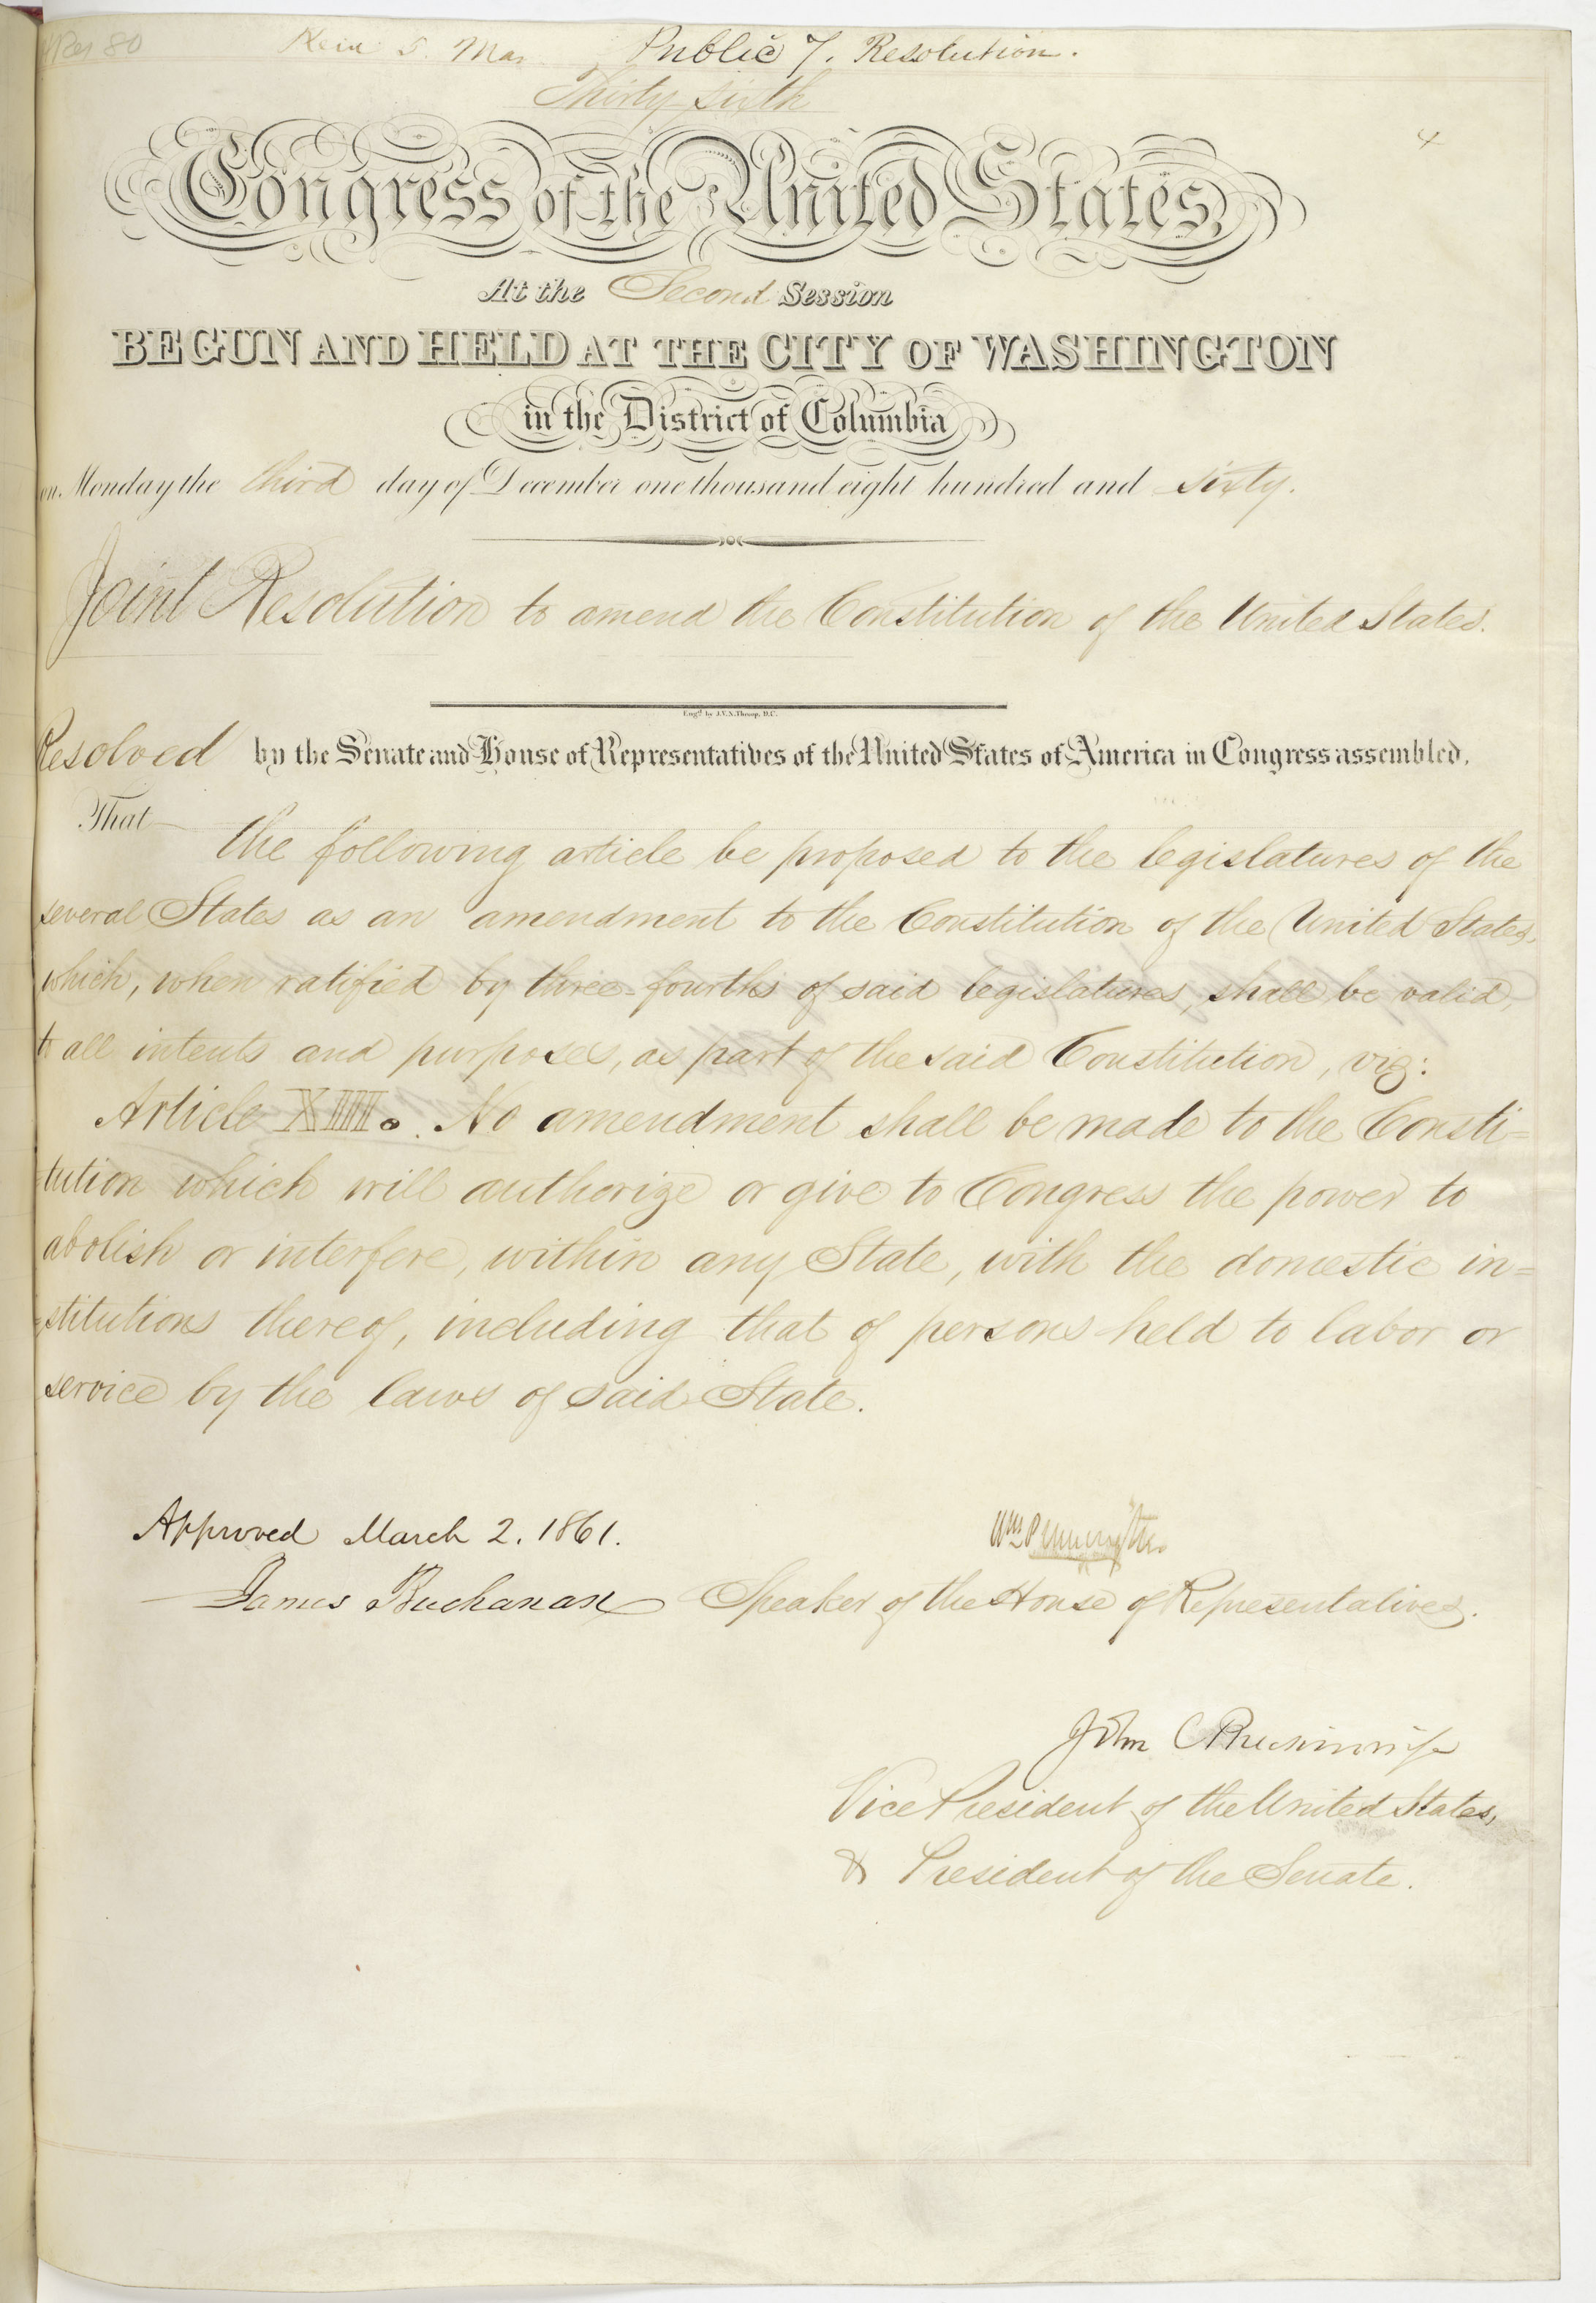 HRes 80
Recd 5. Mar
Public 7. Resolution.
Thirty sixth
4
Congress of the United States,
At the Second Session
BEGUN AND HELD AT THE CITY OF WASHINGTON
in the District of Columbia
on Monday the third day of December one thousand eight hundred and sixty.
Joint Resolution to amend the Constitution of the United States.
Engd. by J.V.N. Throop, D.C.
Resolved by the Senate and House of Representatives of the United States of America in Congress assembled,
That
the following article be proposed to the legislatures of the
several States as an amendment to the Constitution of the United States,
which, when ratified by three-fourths of said legislatures, shall be valid,
to all intents and purposes, as part of the said Constitution, viz:
Article XIII. No amendment shall be made to the Consti=
tution which will authorize or give to Congress the power to
abolish or interfere, within any State, with the domestic in=
stitutions thereof, including that of persons held to labor or
service by the laws of said State.
Approved March 2. 1861.
James Buchanan
Wm Pennington
Speaker of the House of Representatives.
John C Breckinridge
Vice President of the United States,
& President of the Senate.